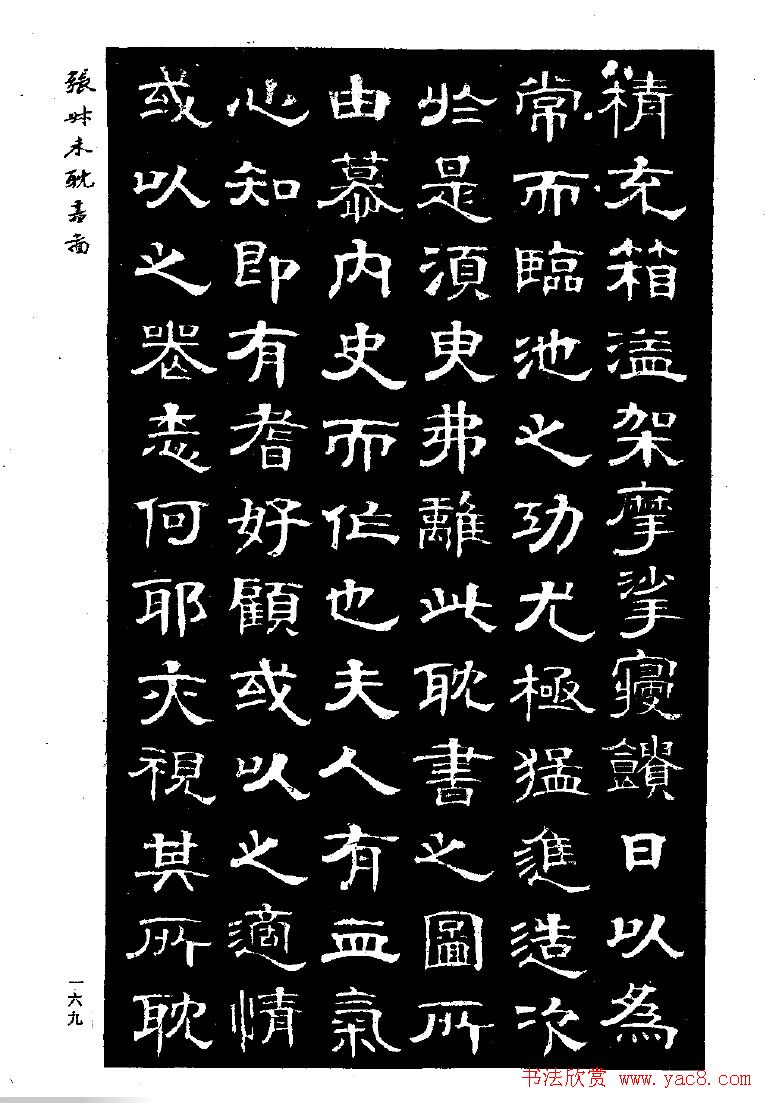 積充箱溢架摩挲寢饋日以為
常而臨池之功尤極猛進造次
於是須臾弗離此耽書之圖所
由慕內史而作也夫人有血氣
心知即有耆好顧或以之適情
或以之喪志何耶亦視其所耽
張叔未耽書圖
一六九
书法欣赏 www.yac8.com